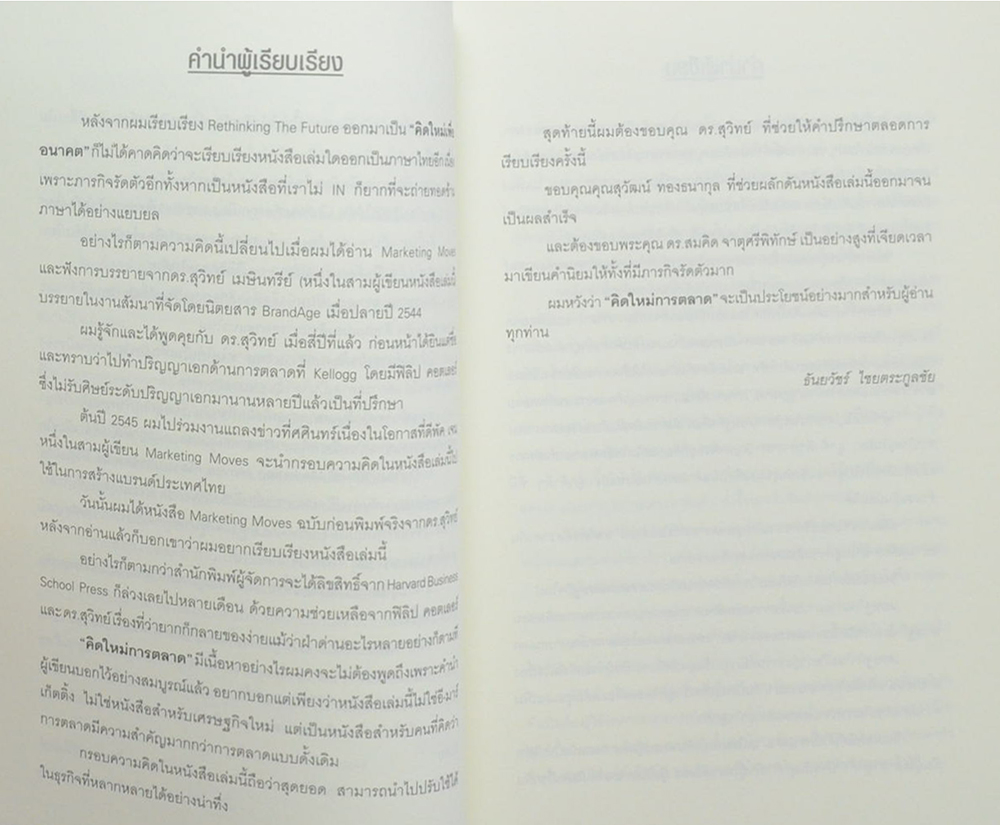 คำนำผู้เรียบเรียง
หลังจากผมเรียบเรียง Rethinking The Future ออกมาเป็น "คิดใหม่เพื่อ
อนาคต" ก็ไม่ได้คาดคิดว่าจะเรียบเรียงหนังสือเล่มใดออกเป็นภาษาไทยอีก
เพราะภารกิจรัดตัวอีกทั้งหากเป็นหนังสือที่เราไม่ IN ก็ยากที่จะถ่ายทอด
ภาษาได้อย่างแยบยล
อย่างไรก็ตามความคิดนี้เปลี่ยนไปเมื่อผมได้อ่าน Marketing Move
และฟังการบรรยายจากดร.สุวิทย์ เมษินทรีย์ (หนึ่งในสามผู้เขียนหนังสือเล่มนี้
บรรยายในงานสัมนาที่จัดโดยนิตยสาร BrandAge เมื่อปลายปี 2544
ผมรู้จักและได้พูดคุยกับ ดร.สุวิทย์ เมื่อสี่ปีที่แล้ว ก่อนหน้าได้ยินแต่ชื่อ
และทราบว่าไปทำปริญญาเอกด้านการตลาดที่ Kellogg โดยมีฟิลิป คอตเลอร์
ซึ่งไม่รับศิษย์ระดับปริญญาเอกมานานหลายปีแล้วเป็นที่ปรึกษา
ต้นปี 2545 ผมไปร่วมงานแถลงข่าวที่ศศินทร์เนื่องในโอกาสที่ดีพัค เจน
หนึ่งในสามผู้เขียน Marketing Moves จะนำกรอบความคิดในหนังสือเล่มนี้ไป
ใช้ในการสร้างแบรนด์ประเทศไทย
วันนั้นผมได้หนังสือ Marketing Moves ฉบับก่อนพิมพ์จริงจากดร.สุวิทย์
หลังจากอ่านแล้วก็บอกเขาว่าผมอยากเรียบเรียงหนังสือเล่มนี้
อย่างไรก็ตามกว่าสำนักพิมพ์ผู้จัดการจะได้ลิขสิทธิ์จาก Harvard Business
School Press ก็ล่วงเลยไปหลายเดือน ด้วยความช่วยเหลือจากฟิลิป คอตเลอร์
และดร.สุวิทย์เรื่องที่ว่ายากก็กลายของง่ายแม้ว่าฝ่าด่านอะไรหลายอย่างก็ตามที
"คิดใหม่การตลาด" มีเนื้อหาอย่างไรผมคงจะไม่ต้องพูดถึงเพราะคำนำ
ผู้เขียนบอกไว้อย่างสมบูรณ์แล้ว อยากบอกแต่เพียงว่าหนังสือเล่มนี้ไม่ใช่อีมาร์
เก็ตติ้ง ไม่ใช่หนังสือสำหรับเศรษฐกิจใหม่ แต่เป็นหนังสือสำหรับคนที่คิดว่า
การตลาดมีความสำคัญมากกว่าการตลาดแบบดั้งเดิม
กรอบความคิดในหนังสือเล่มนี้ถือว่าสุดยอด สามารถนำไปปรับใช้ได้
ในธุรกิจที่หลากหลายได้อย่างน่าทึ่ง
สุดท้ายนี้ผมต้องขอบคุณ ดร.สุวิทย์ ที่ช่วยให้คำปรึกษาตลอดการ
เรียบเรียงครั้งนี้
ขอบคุณคุณสุวัฒน์ ทองธนากุล ที่ช่วยผลักดันหนังสือเล่มนี้ออกมาจน
เป็นผลสำเร็จ
และต้องขอบพระคุณ ดร.สมคิด จาตุศรีพิทักษ์ เป็นอย่างสูงที่เจียดเวลา
มาเขียนคำนิยมให้ทั้งที่มีภารกิจรัดตัวมาก
ผมหวังว่า "คิดใหม่การตลาด" จะเป็นประโยชน์อย่างมากสำหรับผู้อ่าน
ทุกท่าน
ธันยวัชร์ ไชยตระกูลชัย